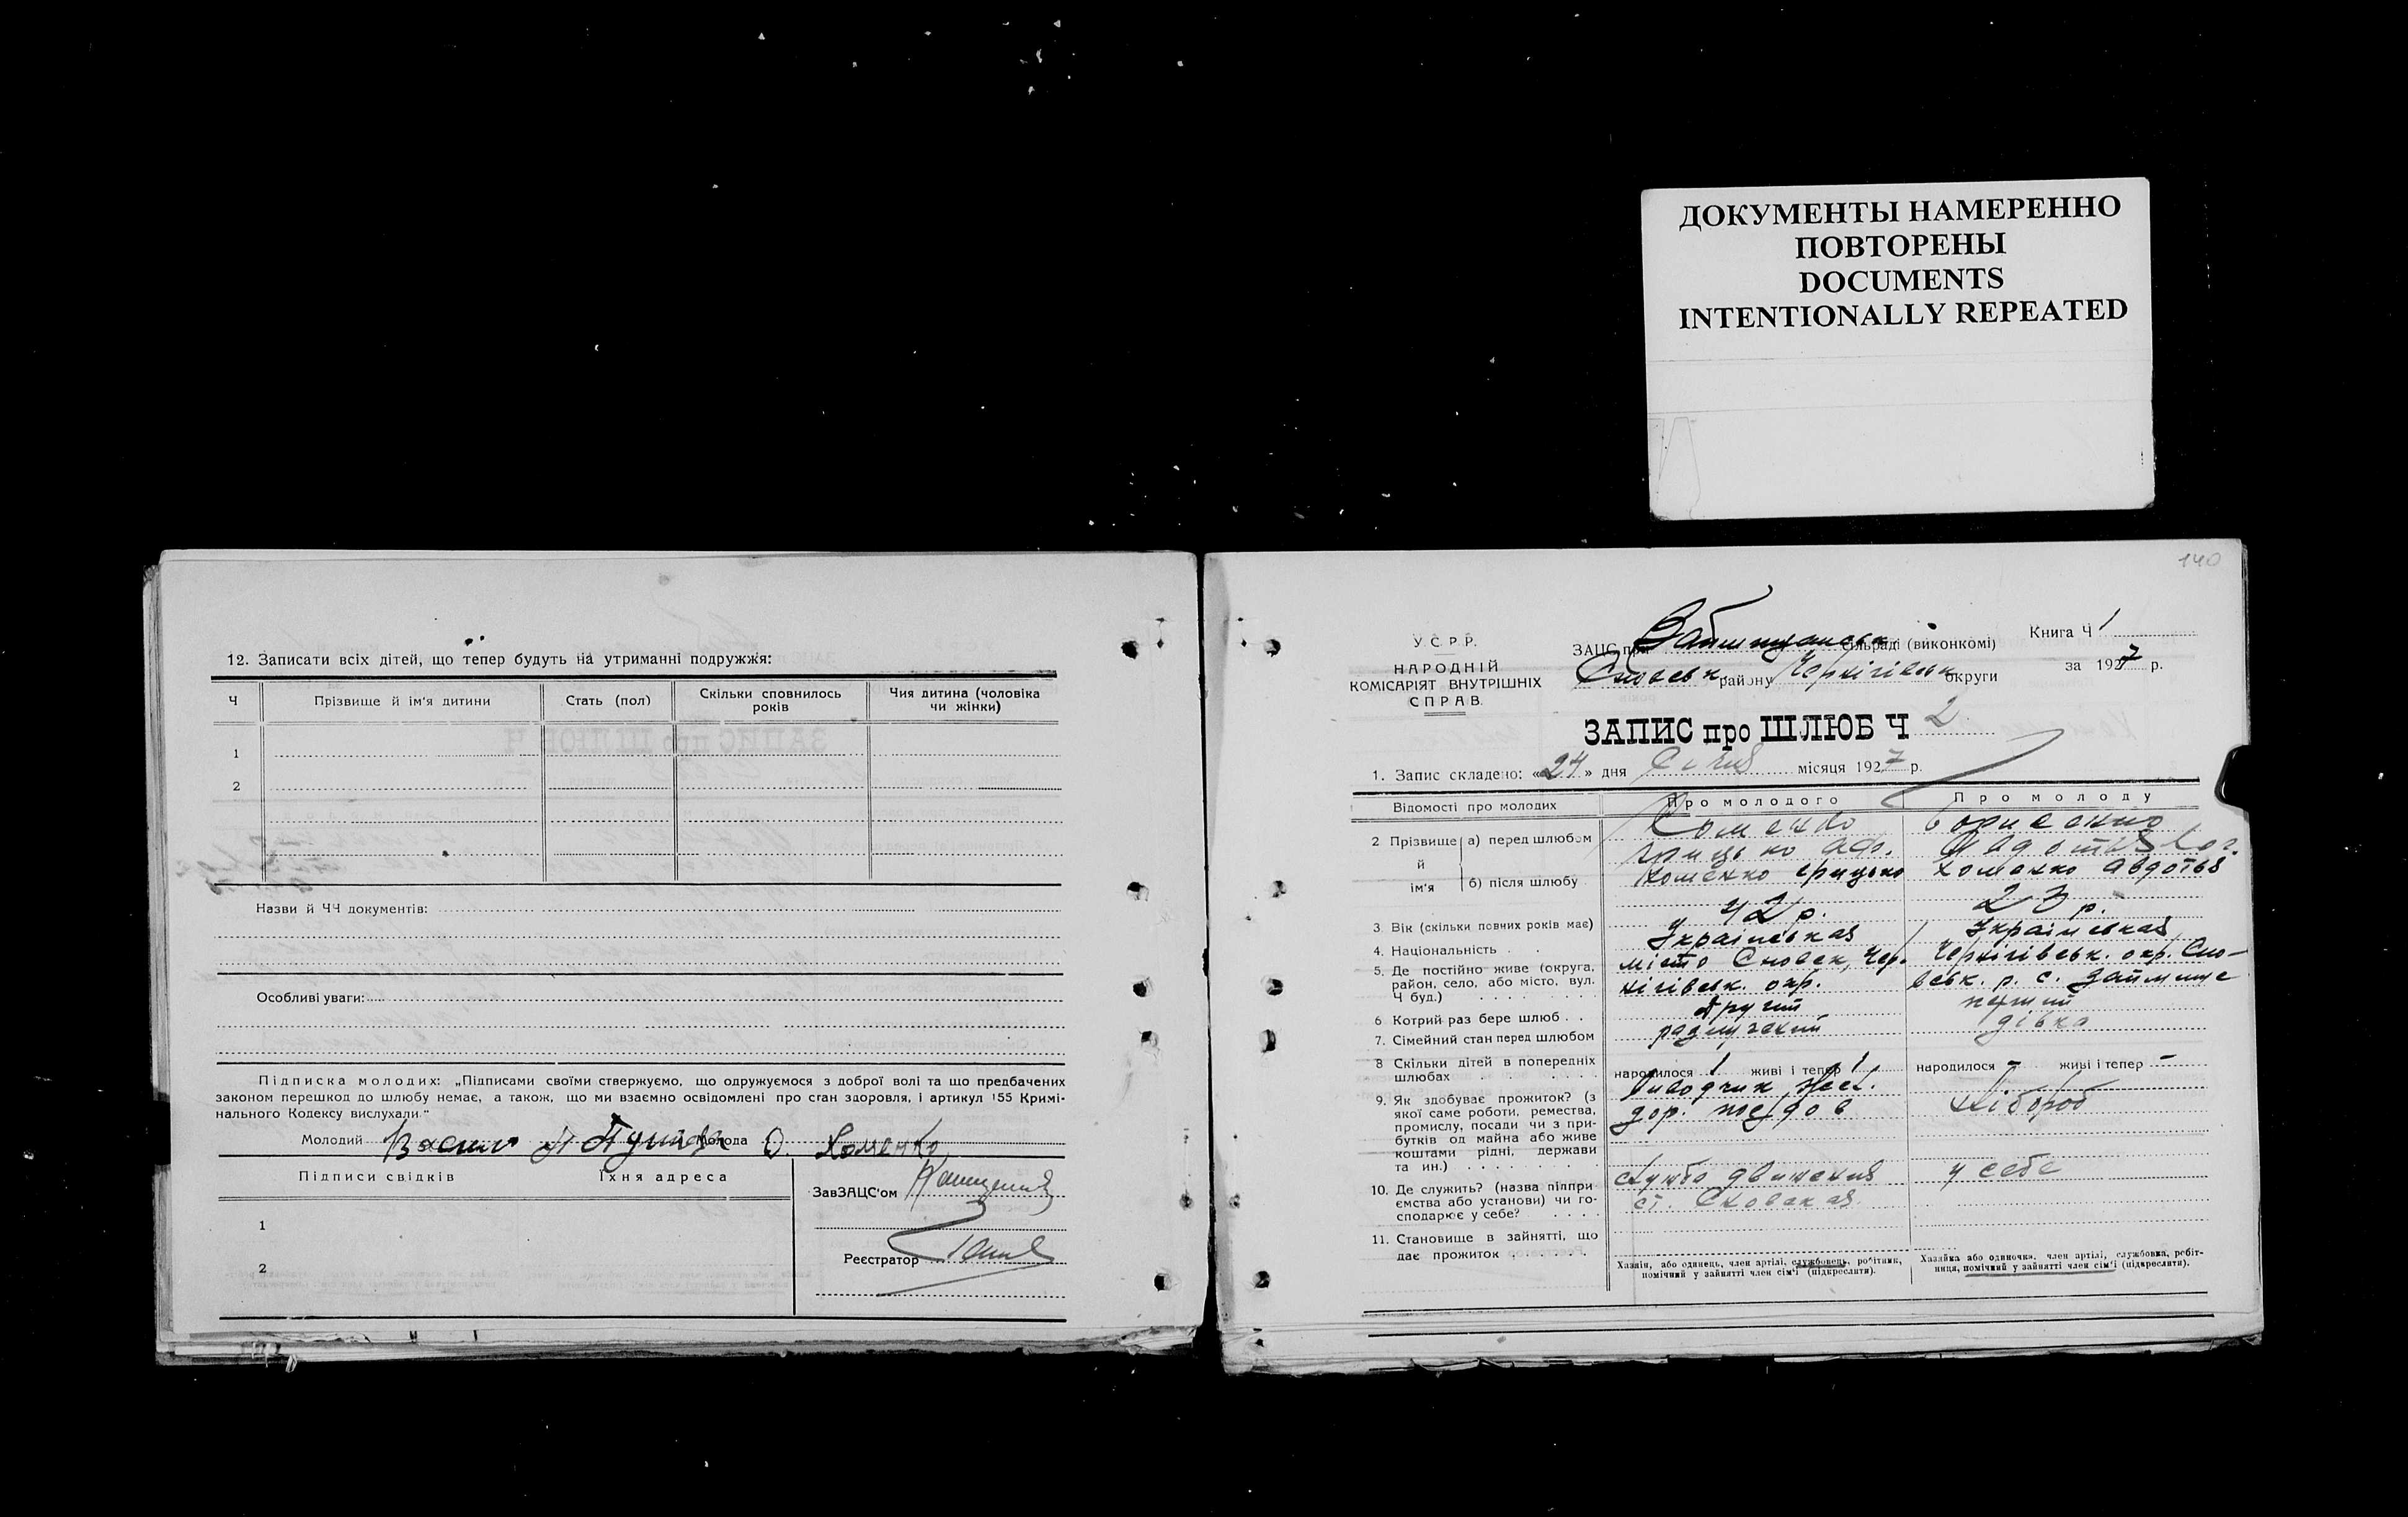 ДОКУМЕНТЫ НАМЕРЕННО
ПОВТОРЕНЫ
DOCUMENTS
INTENTIONALLY REPEATED
12. Записати всіх дітей, що тепер будуть на утриманні подружжя:
Ч Прізвище й ім'я дитини Стать (пол) Скільки сповнилось років Чия дитина (чоловіка чи жінки)
1
2
Назви й ЧЧ документів:
Особливі уваги:
Підписка молодих: „Підписами своїми ствержуємо, що одружуємося з доброї волі та що предбачених
законом перешкод до шлюбу немає, а також, що ми взаємно освідомлені про стан здоровля, і артикул 155 Кримі-
нального Кодексу вислухали"
Молодий Молода О. Хоменко
Підписи свідків Їхня адреса
ЗавЗАЦС'ом
1
Реєстратор
2
140
У.С.Р.Р.
НАРОДНІЙ
КОМІСАРІЯТ ВНУТРІШНІХ
СПРАВ.
ЗАЦС при сільраді (виконкомі)
Сновськ району Чернігівськ округи
Книга Ч 1
за 1927 р.
ЗАПИС про ШЛЮБ Ч 2
1. Запис складено: «24» дня Січня місяця 1927 р.
Відомості про молодих Про молодого Про молоду
2 Прізвище й ім'я а) перед шлюбом Хоменко Грицько Борисенко
б) після шлюбу Хоменко Грицько Хоменко Авдотья
3. Вік (скільки повних років має) 42 р. 23 р.
4. Національність Українськая Українськая
5. Де постійно живе (округа, район, село, або місто, вул. Ч буд.) місто Сновск, Чер-
нігівськ. окр. Чернігівськ. окр. Сно-
вськ. р. с. Займище
6 Котрий раз бере шлюб другий перший
7. Сімейний стан перед шлюбом дівка
8 Скільки дітей в попередніх шлюбах народилося 1 живі і тепер 1 народилося - живі і тепер -
9. Як здобуває прожиток? (з якої саме роботи, ремества, промислу, посади чи з прибутків од майна або живе коштами рідні, держави та ин.) дор. поєздов хлібороб
10. Де служить? (назва підприємства або установи) чи господарює у себе? служба движения
ст. Сновская у себе
11. Становище в зайнятті, що дає прожиток
Хазяїн, або одинець, член артілі, службовець, робітник, помічний у зайнятті член сім'ї (підкреслити).
Хазяйка або одиночка, член артілі, службовка, робітниця, помічний у зайнятті член сім'ї (підкреслити).